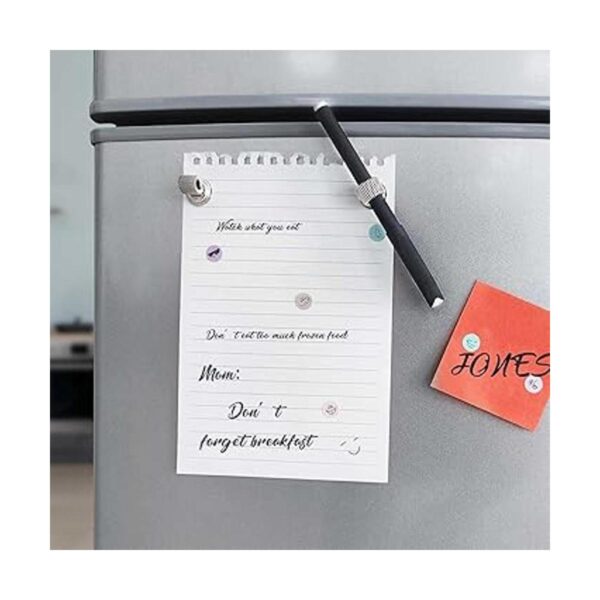 Watch what you eat
Don't eat too much frozen food
Mom:
Don't
forget breakfast
JONES